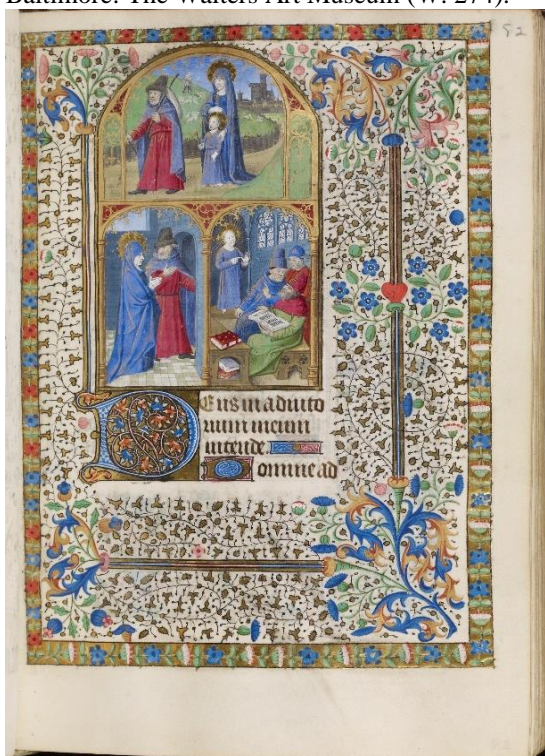 Baltimore: The Walters Art Museum (W. 274).
Deus in adiuto
rium meum
intende
Domine ad